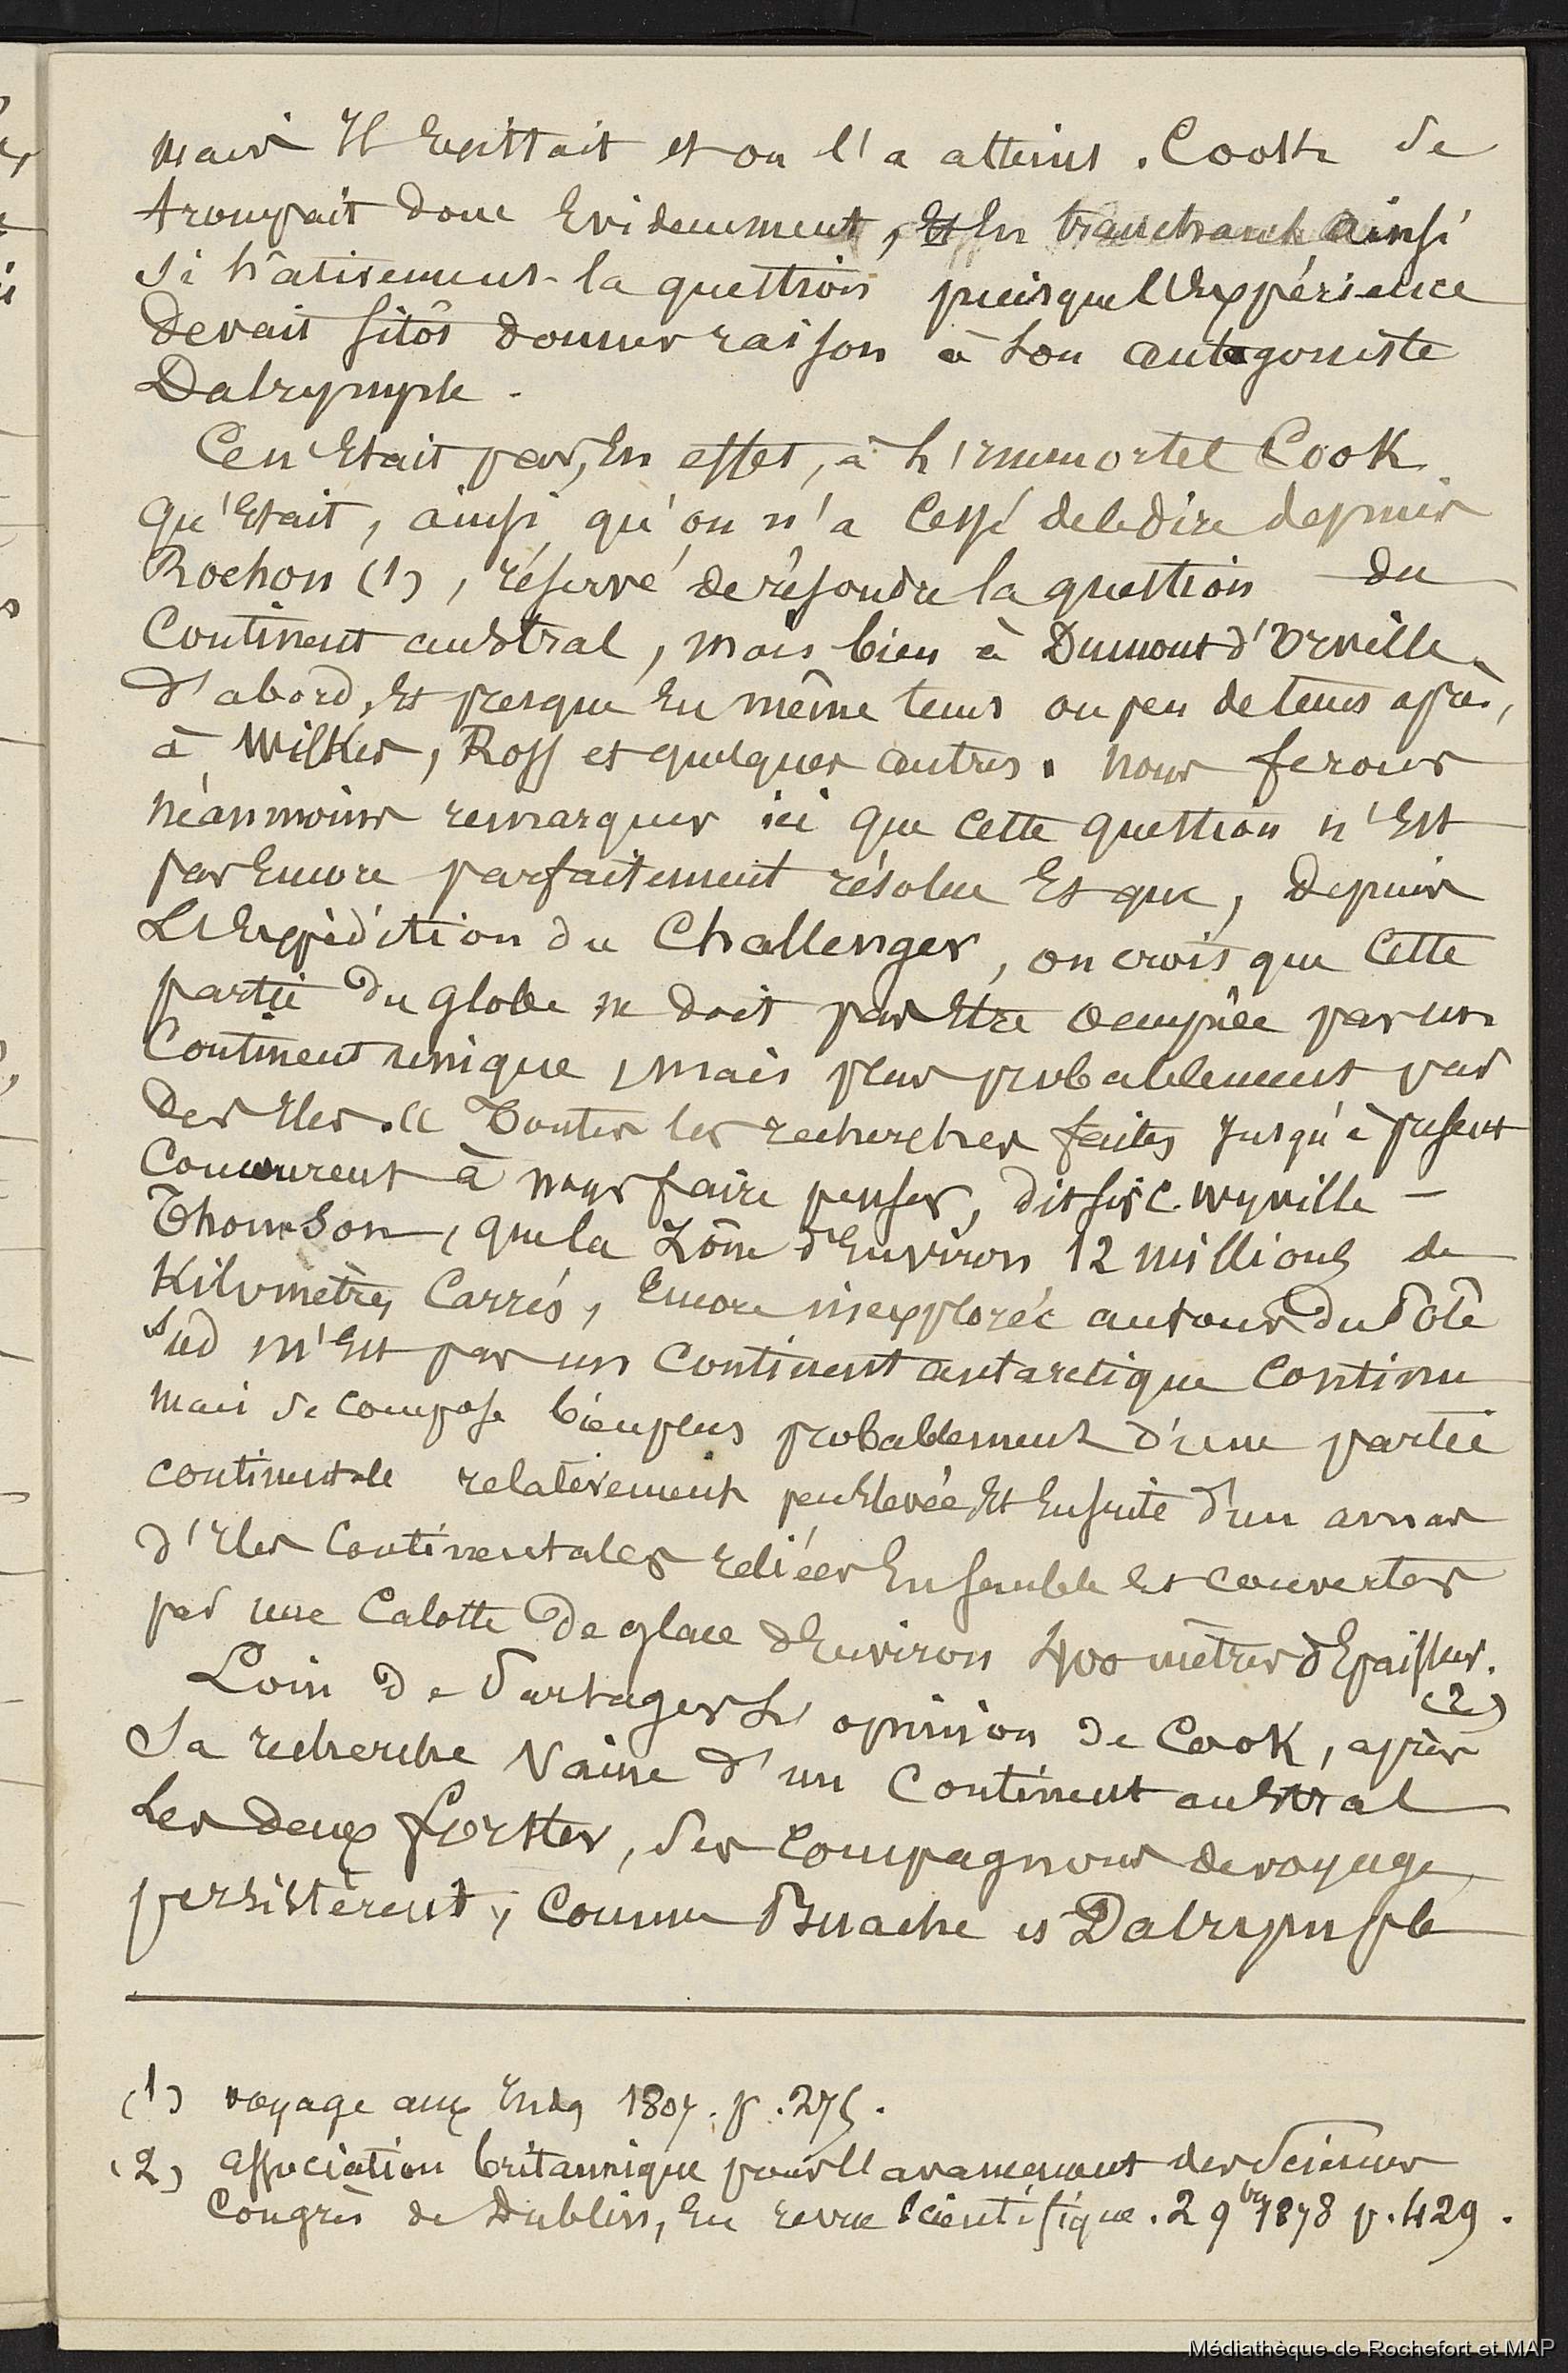 mais Il Existait et on l'a atteint. Cook se
trompait donc Evidemment, En tranchant ainsi
si hâtivement la question puisque l'Expérience
devait sitôt donner raison à son antagoniste
Dalrymple.
Ce n'Etait pas, En effet, à l'immortel Cook
qu'Etait, ainsi qu'on n'a cessé de le dire depuis
Rochon (1), réservé de résoudre la question du
Continent austral, mais bien à Dumont d'Urville
d'abord, Et presque En même tems ou peu de tems après,
à Wilkes, Ross et quelques autres. nous ferons
néanmoins remarquer ici que cette question n'Est
pas Encore parfaitement résolue Et que, depuis
L'Expédition du Challenger, on croit que cette
partie du globe ne doit pas Etre occupée par un
Continent unique, mais plus probablement par
des Iles. « Toutes les recherches faites jusqu'à présent
Concourent à nous faire penser, dit sir C. Wyville-
Thomson, que la Zône d'Environ 12 millions de
Kilomètres Carrés, Encore inexplorée autour du Pôle
Sud n'Est pas un Continent antarctique continu
mais se compose bien plus probablement d'une partie
continentale relativement peu Elevée Et Ensuite d'un amas
d'Iles Continentales reliées Ensemble Et couvertes
par une Calotte de glace d'Environ 400 mètres d'Epaisseur.
(2)
Loin de Partager L'opinion de Cook, après
Sa recherche Vaine d'un Continent austral
Les deux Forster, ses Compagnons de voyage,
persistèrent, Comme Buache et Dalrymple
(1) voyage aux Indes 1807. p. 275.
(2) association britannique pour l'avancement des Sciences
Congrès de Dublin, En revue Scientifique. 2 9bre 1878 p. 429.
Médiathèque de Rochefort et MAP